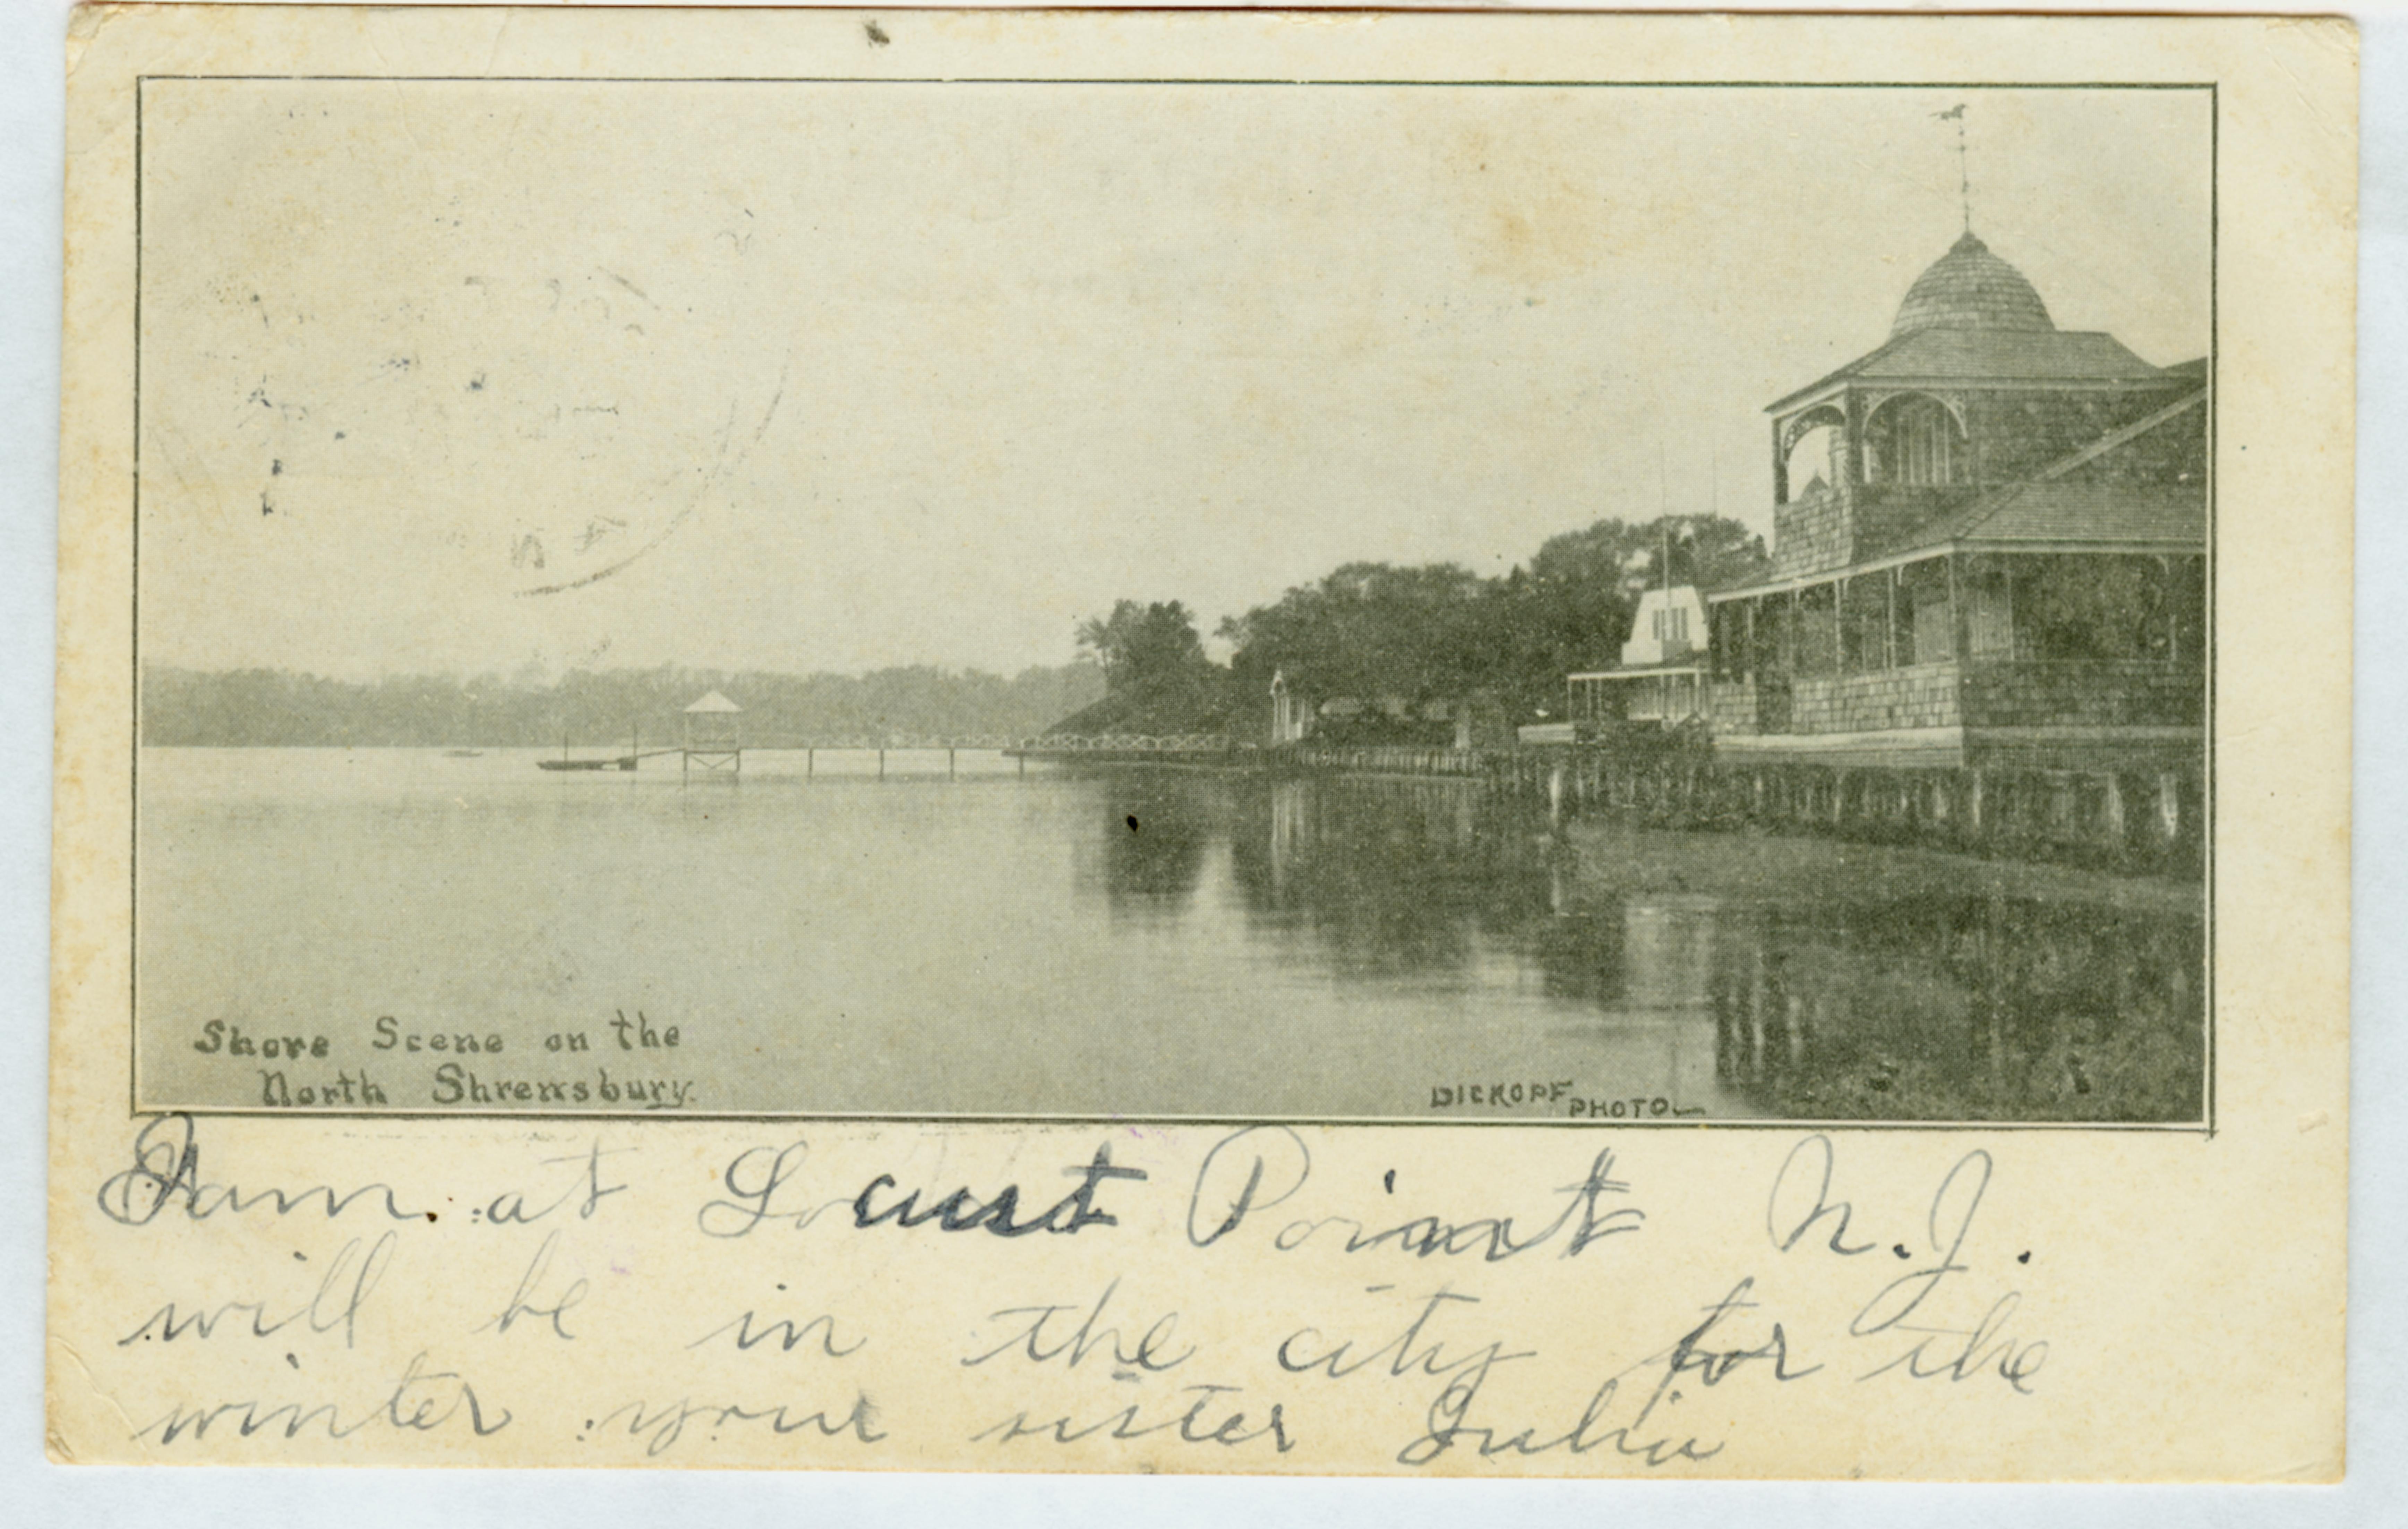 Shore Scene on the
North Shrewsbury.
DICKOPF
PHOTO
I am. at Locust Point N.J.
will be in the city for the
winter your sister Julia